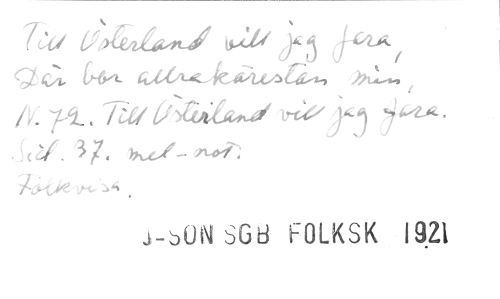 Till Österland vill jag fara,
Där bor allrakärestan min,
N. 72. Till Österland vill jag fara.
Sid. 37. mel-not.
Folkvisa.
J-SON SGB FOLKSK 1921